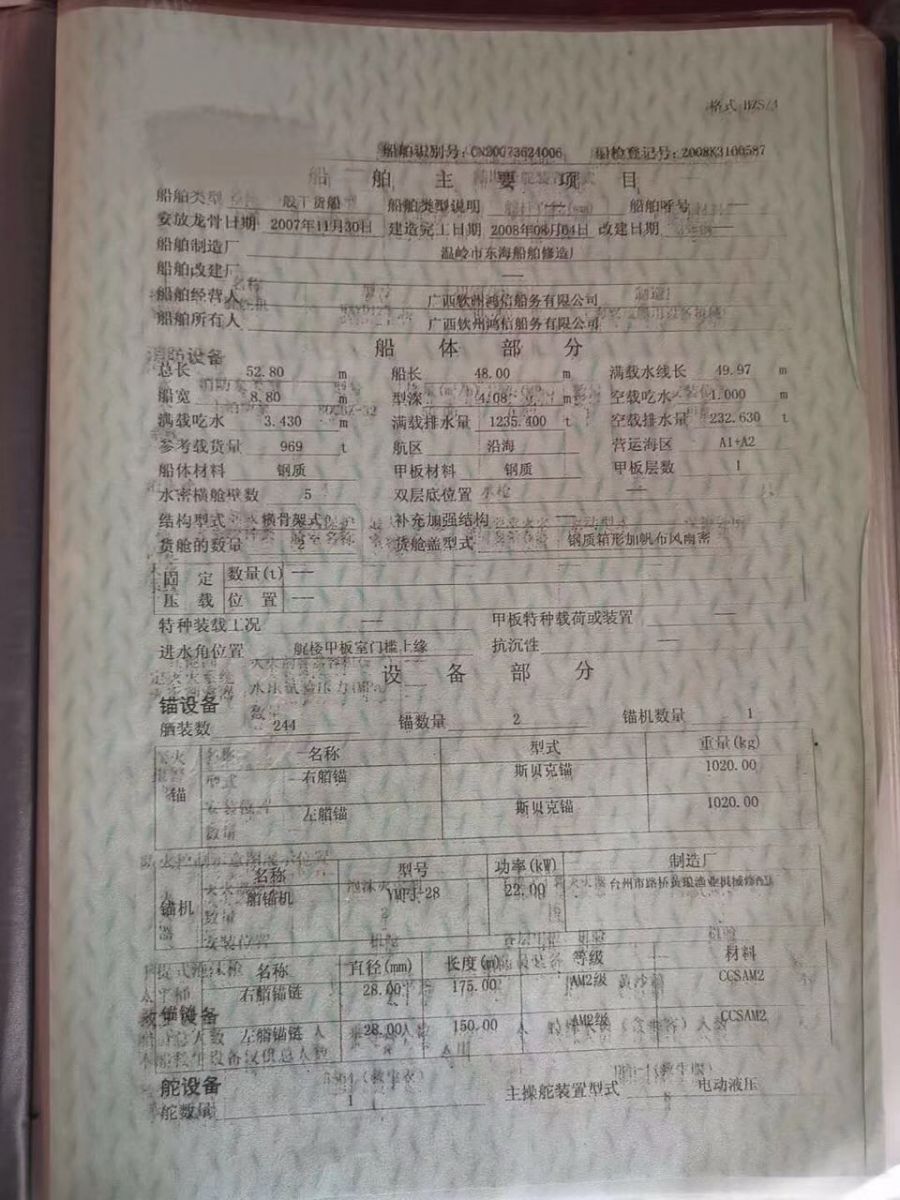 格式 HZS/4
船舶识别号:CN20073624006 船检登记号:2008K3100587
船舶主要项目
船舶类型 一般干货船 船舶类型说明 — 船舶呼号 —
安放龙骨日期 2007年11月30日 建造完工日期 2008年08月04日 改建日期 —
船舶制造厂 温岭市东海船舶修造厂
船舶改建厂 —
船舶经营人 广西钦州鸿信船务有限公司
船舶所有人 广西钦州鸿信船务有限公司
船体部分
总长 52.80 m 船长 48.00 m 满载水线长 49.97 m
船宽 8.80 m 型深 4.08 m 空载吃水 1.000 m
满载吃水 3.430 m 满载排水量 1235.400 t 空载排水量 232.630 t
参考载货量 969 t 航区 沿海 营运海区 A1+A2
船体材料 钢质 甲板材料 钢质 甲板层数 1
水密横舱壁数 5 双层底位置 —
结构型式 横骨架式 补充加强结构 —
货舱的数量 2 货舱盖型式 钢质箱形加帆布风雨密
固定 数量(t) —
压载 位置 —
特种装载工况 — 甲板特种载荷或装置 —
进水角位置 艉楼甲板室门槛上缘 抗沉性 —
设备部分
锚设备
舾装数 244 锚数量 2 锚机数量 1
名称 型式 重量(kg)
锚 右艏锚 斯贝克锚 1020.00
左艏锚 斯贝克锚 1020.00
名称 型号 功率(kW) 制造厂
锚机 艏锚机 YMPJ-28 22.00 台州市路桥黄琅渔业机械
名称 直径(mm) 长度(m) 等级 材料
右艏锚链 28.00 175.00 AM2级 CCSAM2
锚链 左艏锚链 28.00 150.00 AM2级 CCSAM2
舵设备
舵数量 1 主操舵装置型式 电动液压